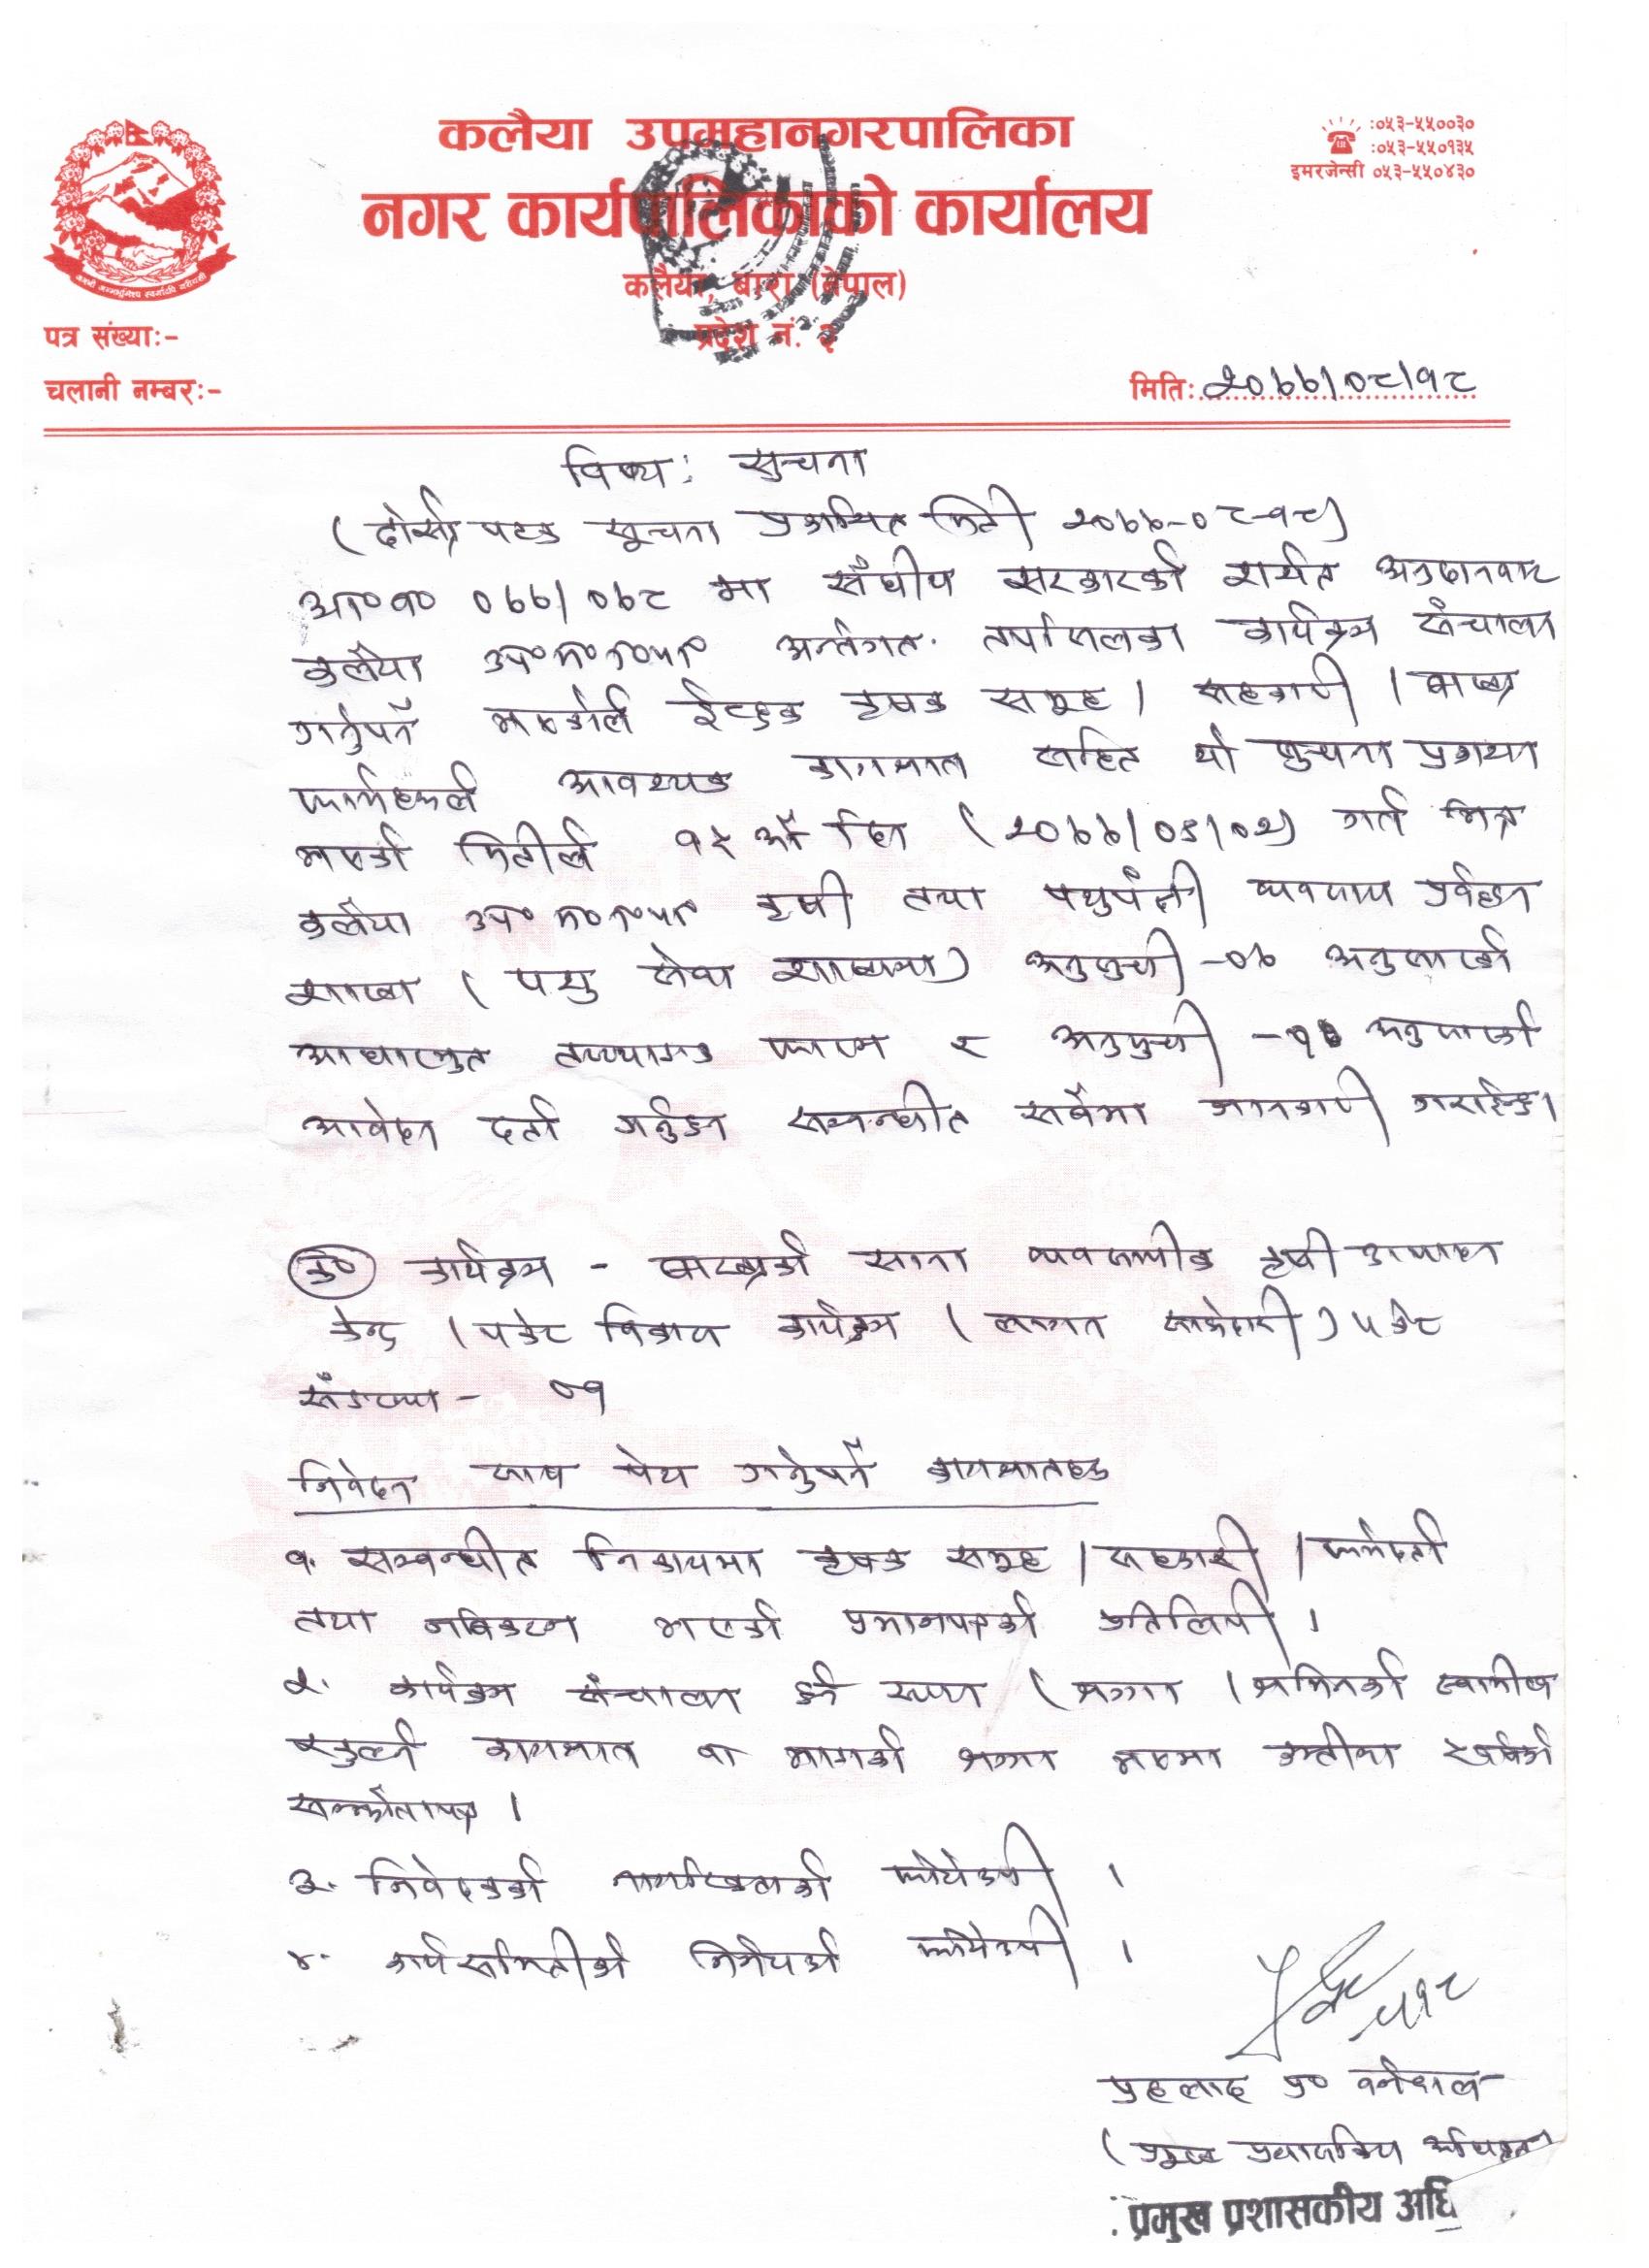 कलैया उपमहानगरपालिका
नगर कार्यपालिकाको कार्यालय
कलैया, बारा (नेपाल)
प्रदेश नं. २
:०५३-५५००३०
:०५३-५५०१३५
इमरजेन्सी ०५३-५५०४३०
पत्र संख्याः-
चलानी नम्बरः-
मितिः २०७७/०८/१८
विषय: सुचना
(दोस्रो पटक सूचना प्रकाशित मिती २०७७-०८-१८)
आ०व० ०७७/०७८ मा संघीय सरकारको शर्सत अनुदानबाट
कलैया उप०म०न०पा० अर्न्तगत तपसिलका कार्यक्रम संचालन
गर्नुपर्ने भएकोले ईच्छुक कृषक समूह / सहकारी / बाख्रा
फार्महरूले आवश्यक कागजात सहित यो सुचना प्रकाशन
भएको मितीले १५ औं दिन (२०७७/०९/०२) गते भित्र
कलैया उप०म०न०पा० कृषी तथा पशुपंक्षी व्यवसाय प्रर्वद्धन
शाखा (पशु सेवा शाखामा) अनुसुची -०७ अनुसारको
आधारभुत तथ्याङ्क फारम र अनुसुची - अनुसारको
आवेदन दर्ता गर्नुहुन सम्बन्धीत सबैमा जानकारी गराईन्छ।
क० कार्यक्रम - बाख्राको साना व्यवसायीक कृषी उत्पादन
केन्द्र (पकेट विकास कार्यक्रम (लागत साझेदारी) पकेट
संङख्या - ०१
निवेदन साथ पेश गर्नुपर्ने कागजातहरु
१. सम्बन्धीत निकायमा कृषक समूह / सहकारी / फर्मदर्ता
तथा नविकरण भएको प्रमाणपत्रको प्रतिलिपी ।
२. कार्यक्रम संचालन हुने स्थान (जग्गा / जमिनको स्वामीत्व
खुल्ने कागजात वा भाडाको जग्गा भएमा कम्तीमा वर्षको
सम्झौतापत्र ।
३. निवेदकको नागरिकताको फोटोकपी ।
४. कार्य समितीको निर्णयको फोटोकपी ।
प्रहलाद प्र०
(प्रमुख प्रशासकिय अधिकृत)
प्रमुख प्रशासकीय अधि